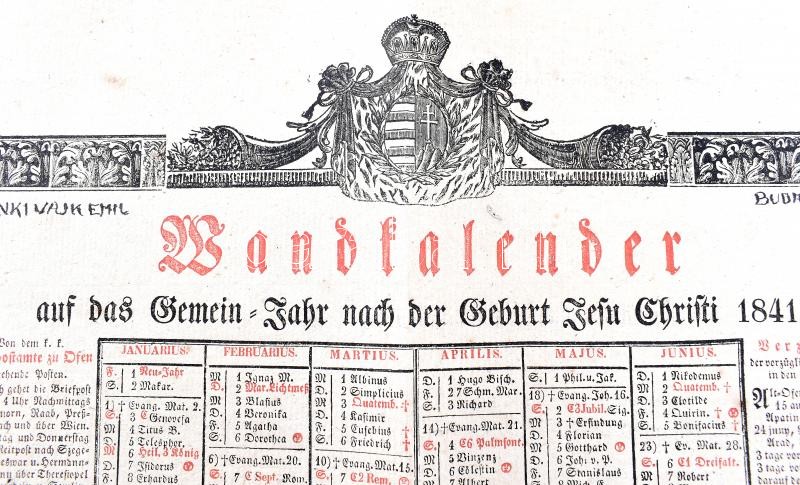 NKI VAJK EMIL
BUDA
Wandkalender
auf das Gemein-Jahr nach der Geburt Jesu Christi 1841
Von dem k. k.
postamte zu Ofen
ehende Posten.
geht die Briefpost
4 Uhr Nachmittags
morn, Raab, Preß-
und über Wien.
tag und Donnerstag
Reitpost nach Szege-
eswar u. Hermann-
nn über Theresiopel
JANUARIUS.
F. 1 Neu-Jahr
S. 2 Makar.
1) † Evang. Mat. 2.
S. 3 C Genovefa
M 4 Titus B.
D. 5 Telesphor.
M 6 Heil. 3 König
D. 7 Isidorus
F. 8 Erhardus
FEBRUARIUS.
M 1 Ignaz M.
D. 2 Mar. Lichtmeß
M 3 Blasius
D. 4 Veronika
F. 5 Agatha
S. 6 Dorothea
6) † Evang. Mat. 20.
S. 7 C Sept. Rom.
MARTIUS.
M 1 Albinus
D. 2 Simplicius
M 3 Quatemb. †
D. 4 Kasimir
F. 5 Eusebius †
S. 6 Friedrich †
10) † Evang. Mat. 15.
S. 7 C2 Rem.
APRILIS.
D. 1 Hugo Bisch.
F. 2 7 Schm. Mar.
S. 3 Richard
14) † Evang. Mat. 21.
S. 4 C6 Palmsont.
M 5 Vinzenz
D. 6 Cölestin
M 7 Albert
MAJUS.
S. 1 Phil. u. Jak.
18) † Evang. Joh. 16.
S. 2 C3 Jubil. Sig.
M 3 † Erfindung
D. 4 Florian
M 5 Gotthard
D. 6 Joh. v. P.
F. 7 Stanislaus
JUNIUS.
D. 1 Nikodemus
M 2 Quatemb. †
D. 3 Clotilde
F. 4 Quirin. †
S. 5 Bonifacius †
23) † Ev. Mat. 28.
S. 6 C1 Dreifalt.
M 7 Robert
Verz
der in den
Alt-Ofe
15 au
Apatin
24 jun
Arad,
3 tage v
3 tage